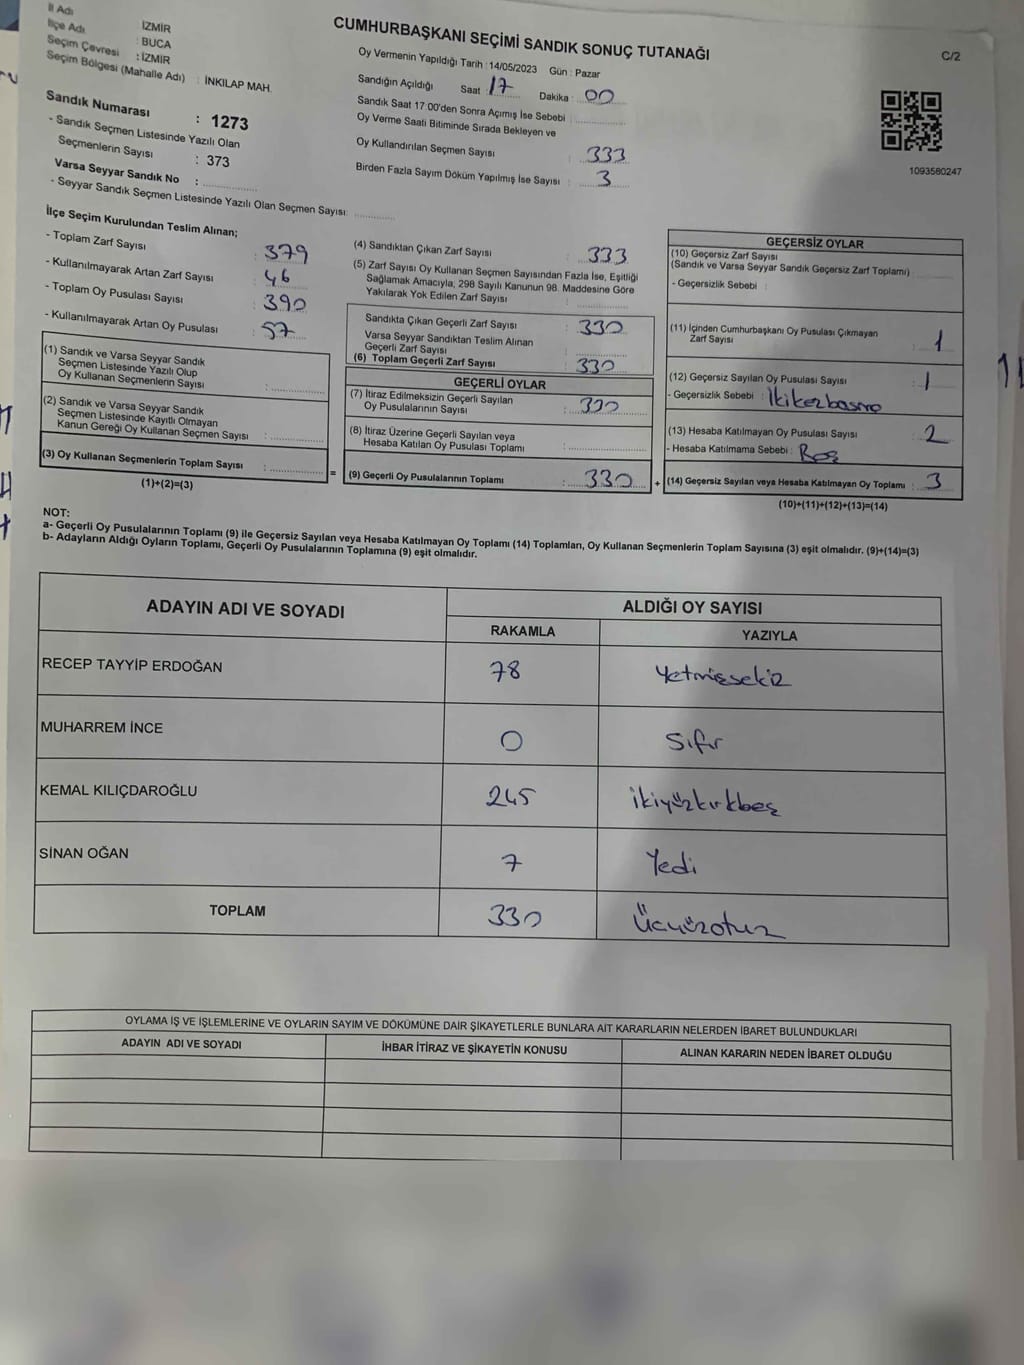 İl Adı
İlçe Adı : İZMİR
: BUCA
Seçim Çevresi : İZMİR
Seçim Bölgesi (Mahalle Adı) : İNKILAP MAH.
Sandık Numarası : 1273
- Sandık Seçmen Listesinde Yazılı Olan
Seçmenlerin Sayısı : 373
Varsa Seyyar Sandık No :
- Seyyar Sandık Seçmen Listesinde Yazılı Olan Seçmen Sayısı:
CUMHURBAŞKANI SEÇİMİ SANDIK SONUÇ TUTANAĞI
Oy Vermenin Yapıldığı Tarih : 14/05/2023 Gün : Pazar
Sandığın Açıldığı Saat : 17 Dakika : 00
Sandık Saat 17.00'den Sonra Açımış İse Sebebi :
Oy Verme Saati Bitiminde Sırada Bekleyen ve
Oy Kullandırılan Seçmen Sayısı : 333
Birden Fazla Sayım Döküm Yapılmış İse Sayısı : 3
C/2
1093580247
İlçe Seçim Kurulundan Teslim Alınan;
- Toplam Zarf Sayısı : 379
- Kullanılmayarak Artan Zarf Sayısı : 46
- Toplam Oy Pusulası Sayısı : 390
- Kullanılmayarak Artan Oy Pusulası : 57
(1) Sandık ve Varsa Seyyar Sandık
Seçmen Listesinde Yazılı Olup
Oy Kullanan Seçmenlerin Sayısı :
(2) Sandık ve Varsa Seyyar Sandık
Seçmen Listesinde Kayıtlı Olmayan
Kanun Gereği Oy Kullanan Seçmen Sayısı :
(3) Oy Kullanan Seçmenlerin Toplam Sayısı :
(1)+(2)=(3)
=
(4) Sandıktan Çıkan Zarf Sayısı : 333
(5) Zarf Sayısı Oy Kullanan Seçmen Sayısından Fazla İse, Eşitliği
Sağlamak Amacıyla, 298 Sayılı Kanunun 98. Maddesine Göre
Yakılarak Yok Edilen Zarf Sayısı :
Sandıkta Çıkan Geçerli Zarf Sayısı : 330
Varsa Seyyar Sandıktan Teslim Alınan
Geçerli Zarf Sayısı :
(6) Toplam Geçerli Zarf Sayısı : 330
GEÇERLİ OYLAR
(7) İtiraz Edilmeksizin Geçerli Sayılan
Oy Pusulalarının Sayısı : 330
(8) İtiraz Üzerine Geçerli Sayılan veya
Hesaba Katılan Oy Pusulası Toplamı :
(9) Geçerli Oy Pusulalarının Toplamı : 330
+
GEÇERSİZ OYLAR
(10) Geçersiz Zarf Sayısı
(Sandık ve Varsa Seyyar Sandık Geçersiz Zarf Toplamı) :
- Geçersizlik Sebebi :
(11) İçinden Cumhurbaşkanı Oy Pusulası Çıkmayan
Zarf Sayısı : 1
(12) Geçersiz Sayılan Oy Pusulası Sayısı : 1
- Geçersizlik Sebebi : İkikezbasma
(13) Hesaba Katılmayan Oy Pusulası Sayısı : 2
- Hesaba Katılmama Sebebi : Boş
(14) Geçersiz Sayılan veya Hesaba Katılmayan Oy Toplamı : 3
(10)+(11)+(12)+(13)=(14)
NOT:
a- Geçerli Oy Pusulalarının Toplamı (9) ile Geçersiz Sayılan veya Hesaba Katılmayan Oy Toplamı (14) Toplamları, Oy Kullanan Seçmenlerin Toplam Sayısına (3) eşit olmalıdır. (9)+(14)=(3)
b- Adayların Aldığı Oyların Toplamı, Geçerli Oy Pusulalarının Toplamına (9) eşit olmalıdır.
ADAYIN ADI VE SOYADI ALDIĞI OY SAYISI
RAKAMLA YAZIYLA
RECEP TAYYİP ERDOĞAN 78 Yetmişsekiz
MUHARREM İNCE 0 Sıfır
KEMAL KILIÇDAROĞLU 245 ikiyüzkırkbeş
SİNAN OĞAN 7 Yedi
TOPLAM 330 Üçyüzotuz
OYLAMA İŞ VE İŞLEMLERİNE VE OYLARIN SAYIM VE DÖKÜMÜNE DAİR ŞİKAYETLERLE BUNLARA AİT KARARLARIN NELERDEN İBARET BULUNDUKLARI
ADAYIN ADI VE SOYADI İHBAR İTİRAZ VE ŞİKAYETİN KONUSU ALINAN KARARIN NEDEN İBARET OLDUĞU